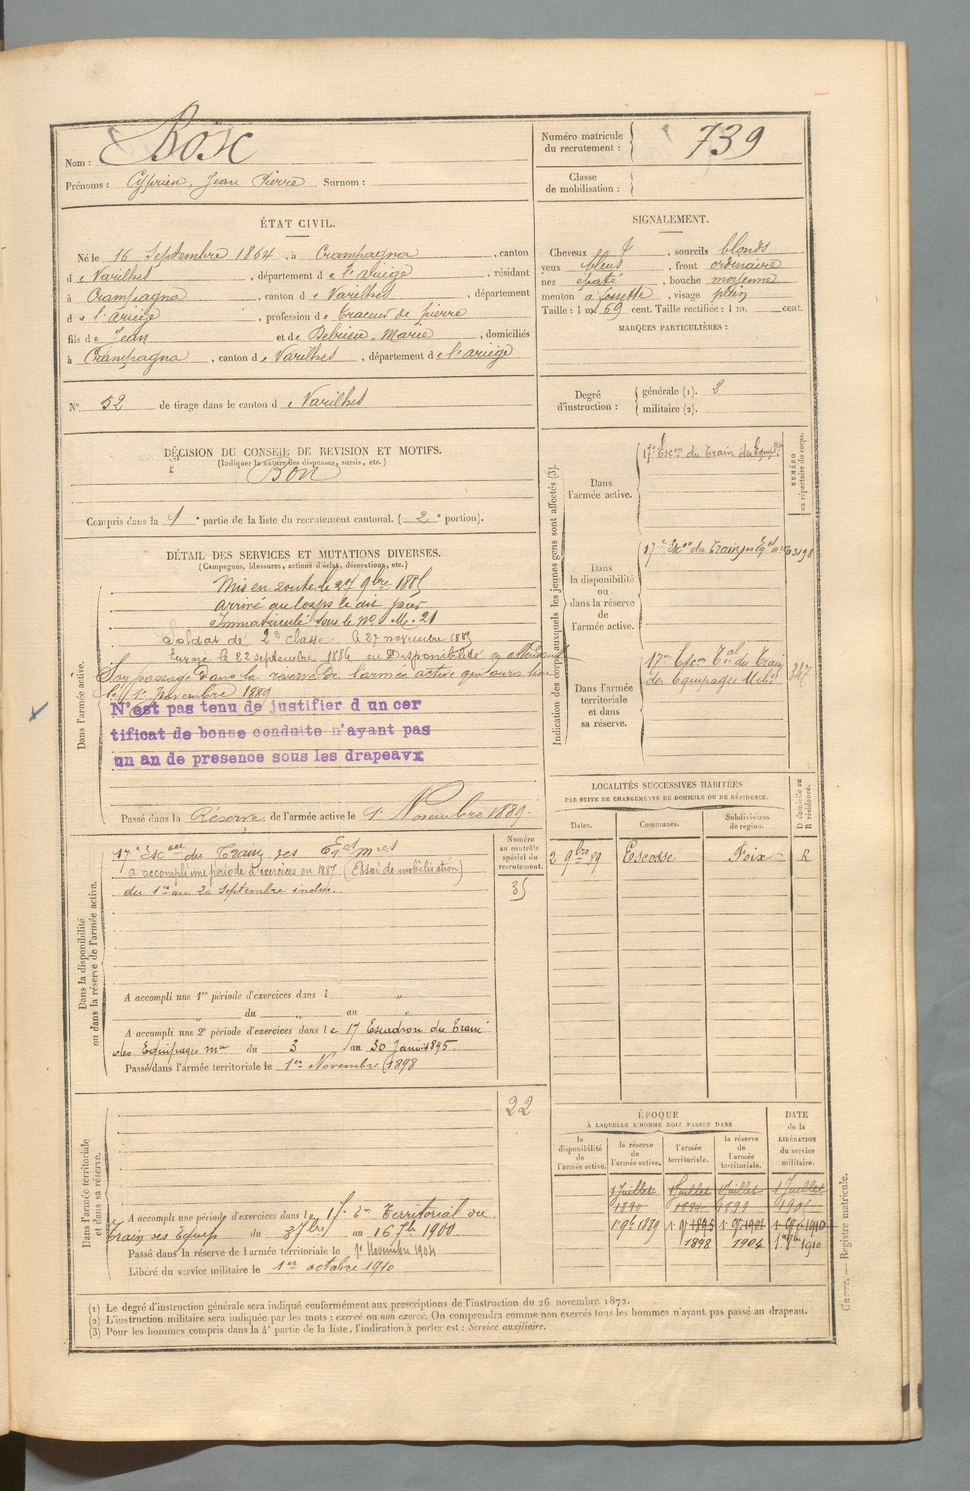 Nom : Bosc
Prénoms : Cyprien, Jean Pierre Surnom :
Numéro matricule du recrutement : 739
Classe de mobilisation :
ÉTAT CIVIL.
Né le 16 Septembre 1864, à Crampagna, canton
de Varilhes, département de l'ariège, résidant
à Crampagna, canton de Varilhes, département
de l'ariège, profession de traceur de pierre
fils de Jean et de Marie, domiciliés
à Crampagna, canton de Varilhes, département de l'ariège
N° 52 de tirage dans le canton de Varilhes
SIGNALEMENT.
Cheveux &, sourcils blonds
yeux bleus, front ordinaire
nez épaté, bouche moyenne
menton à fossette, visage plein
Taille : 1 m. 69 cent. Taille rectifiée : 1 m. cent.
MARQUES PARTICULIÈRES :
Degré d'instruction : générale (1). 3
militaire (2).
DÉCISION DU CONSEIL DE REVISION ET MOTIFS.
(Indiquer la nature des dispenses, sursis, etc.)
Bon
Compris dans la 1e partie de la liste du recrutement cantonal. (2e portion).
DÉTAIL DES SERVICES ET MUTATIONS DIVERSES.
(Campagnes, blessures, actions d'éclat, décorations, etc.)
Dans l'armée active.
Mis en route le 27 9bre 1885
arrivé au corps le dit jour
Immatriculé sous le No M. 21
Soldat de 2e classe le 27 novembre 1885
le 22 septembre 1886 en Disponibilité en attendant
Son passage dans la réserve de l'armée active qui aura lieu
le 1er novembre 1889
N'est pas tenu de justifier d un cer
tificat de bonne conduite n'ayant pas
un an de presence sous les drapeaux
Passé dans la Réserve de l'armée active le 1er Novembre 1889.
Dans la disponibilité ou dans la réserve de l'armée active.
Numéro au contrôle spécial du recrutement.
35
17e Escon du Train des Eqes mres
a accompli une période d'exercices en 1887 (Essai de mobilisation)
du 1er au 20 Septembre inclus.
A accompli une 1re période d'exercices dans l "
" du " au "
A accompli une 2e période d'exercices dans le 17 Escadron du Train
des Equipages mres du 3 au 30 Janvier 1895.
Passé dans l'armée territoriale le 1er Novembre 1898
Dans l'armée territoriale et dans sa réserve.
22
A accompli une période d'exercices dans le 17e Territorial du
Train des Equip du 3 7bre au 16 7b 1900.
Passé dans la réserve de l'armée territoriale le 1er Novembre 1904
Libéré du service militaire le 1er octobre 1910
Indication des corps auxquels les jeunes gens sont affectés (3).
NUMÉRO au répertoire du corps.
Dans l'armée active.
17e Escon du Train des Equipes
Dans la disponibilité ou dans la réserve de l'armée active.
17e Escon du Train
Dans l'armée territoriale et dans sa réserve.
17me Escon Tal du Train
des Equipages Mres
347
LOCALITÉS SUCCESSIVES HABITÉES
PAR SUITE DE CHANGEMENTS DE DOMICILE OU DE RÉSIDENCE.
Dates. Communes. Subdivisions de region. D domicile ou R résidence.
2 9bre 89 Escosse Foix R
ÉPOQUE
À LAQUELLE L'HOMME DOIT PASSER DANS
DATE de la LIBÉRATION du service militaire.
la disponibilité de l'armée active.
la réserve de l'armée active.
l'armée territoriale.
la réserve de l'armée territoriale.
1 Juillet 1 Juillet 1 Juillet 1 Juillet
1890 1899
1 9b 1889
1898 1904 1910
(1) Le degré d'instruction générale sera indiqué conformément aux prescriptions de l'instruction du 26 novembre 1872.
(2) L'instruction militaire sera indiquée par les mots : exercé ou non exercé. On comprendra comme non exercés tous les hommes n'ayant pas passé au drapeau.
(3) Pour les hommes compris dans la 4e partie de la liste, l'indication à porter est : Service auxiliaire.
Registre matricule.